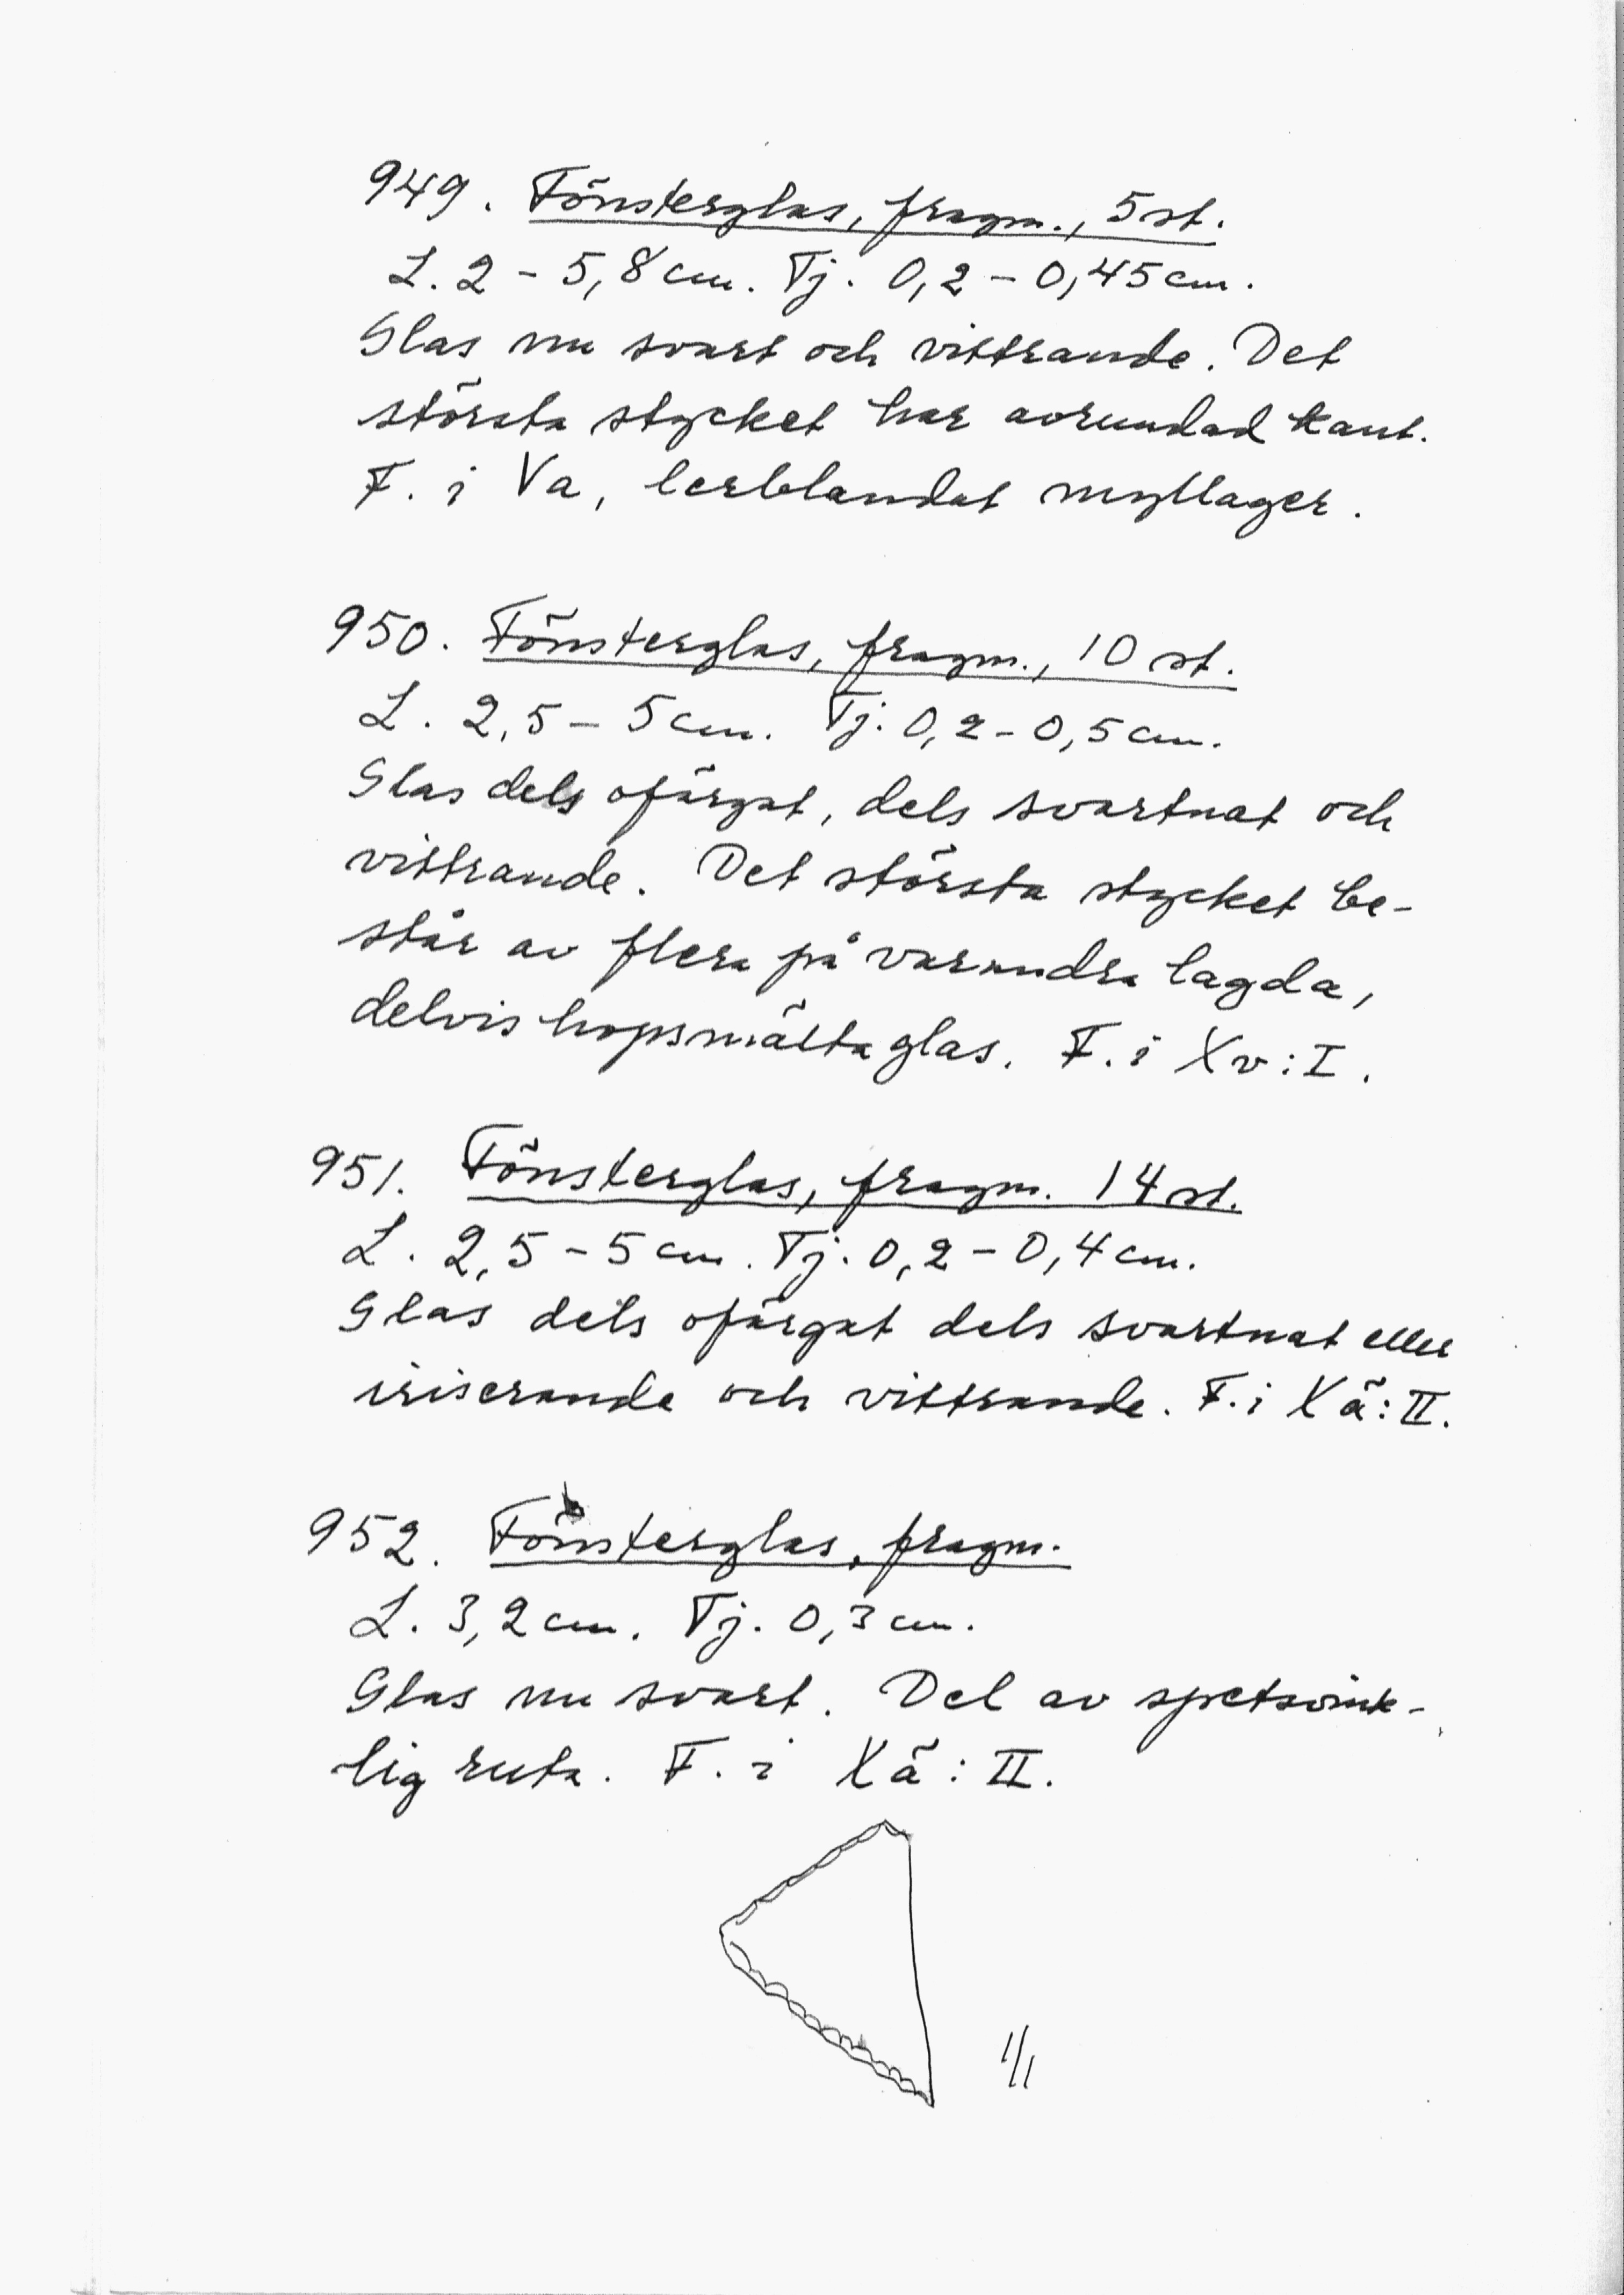 949. Fönsterglas, fragm., 5 st.
L. 2 - 5,8 cm. Tj. 0,2 - 0,45 cm.
Glas nu svart och vittrande. Det
största stycket har avrundad kant.
F. i Va, lerblandat myllager.
950. Fönsterglas, fragm., 10 st.
L. 2,5 - 5 cm. Tj. 0,2 - 0,5 cm.
Glas dels ofärgat, dels svartnat och
vittrande. Det största stycket be-
står av flera på varandra lagda,
delvis hopsmälta glas. F. i Xv: I.
951. Fönsterglas, fragm. 14 st.
L. 2,5 - 5 cm. Tj. 0,2 - 0,4 cm.
Glas dels ofärgat dels svartnat eller
iriserande och vittrande. F. i Xä: II.
952. Fönsterglas, fragm.
L. 3,2 cm. Tj. 0,3 cm.
Glas nu svart. Del av spetsvink-
lig ruta. F. i Xä: II.
1/1